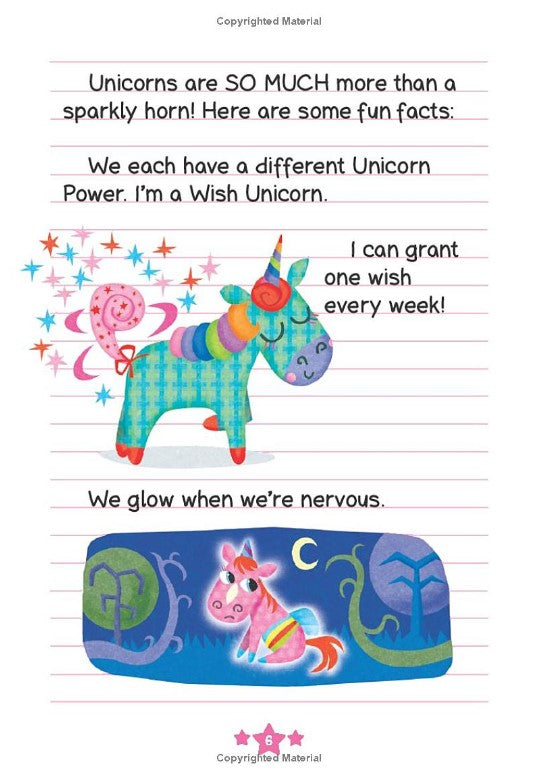 Copyrighted Material
Unicorns are SO MUCH more than a
sparkly horn! Here are some fun facts:
We each have a different Unicorn
Power. I'm a Wish Unicorn.
I can grant
one wish
every week!
We glow when we're nervous.
6
Copyrighted Material